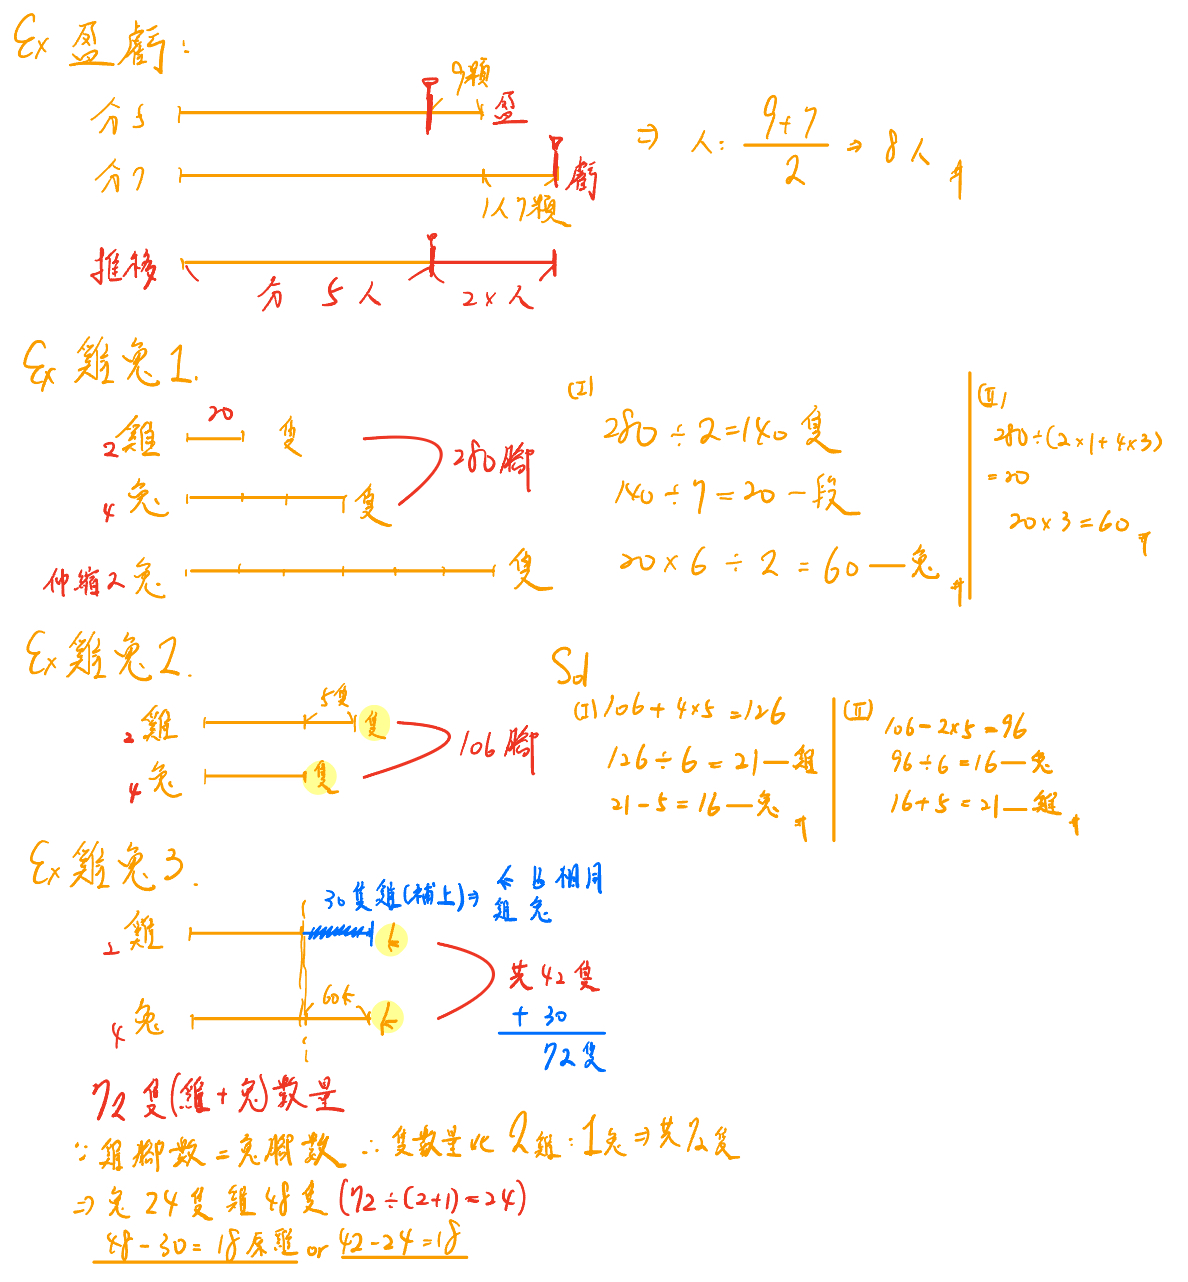 Ex 盈虧:
分5 9顆 盈
⇒ 人: (9+7)/2 ⇒ 8人
分7 1人7顆 虧
推移 分 5 人 2 x 人
Ex 雞兔1.
2雞 20 隻
4兔 隻
280腳
伸縮2兔 隻
(I)
280÷2=140 隻
140÷7=20一段
20×6÷2=60—兔
(II)
280÷(2×1+4×3)
=20
20×3=60
Ex 雞兔2.
2雞 5隻 隻
4兔 隻
106腳
Sol
(I) 106+4×5=126
126÷6=21—雞
21-5=16—兔
(II)
106-2×5=96
96÷6=16—兔
16+5=21—雞
Ex 雞兔3.
30隻雞(補上)⇒ 相同
雞 兔
2雞
4兔 60
共42隻
+ 30
72隻
72隻(雞+兔)數量
∵雞腳數=兔腳數 ∴隻數量比 2雞:1兔⇒共72隻
⇒兔24隻 雞48隻 (72÷(2+1)=24)
48-30=18原雞 or 42-24=18